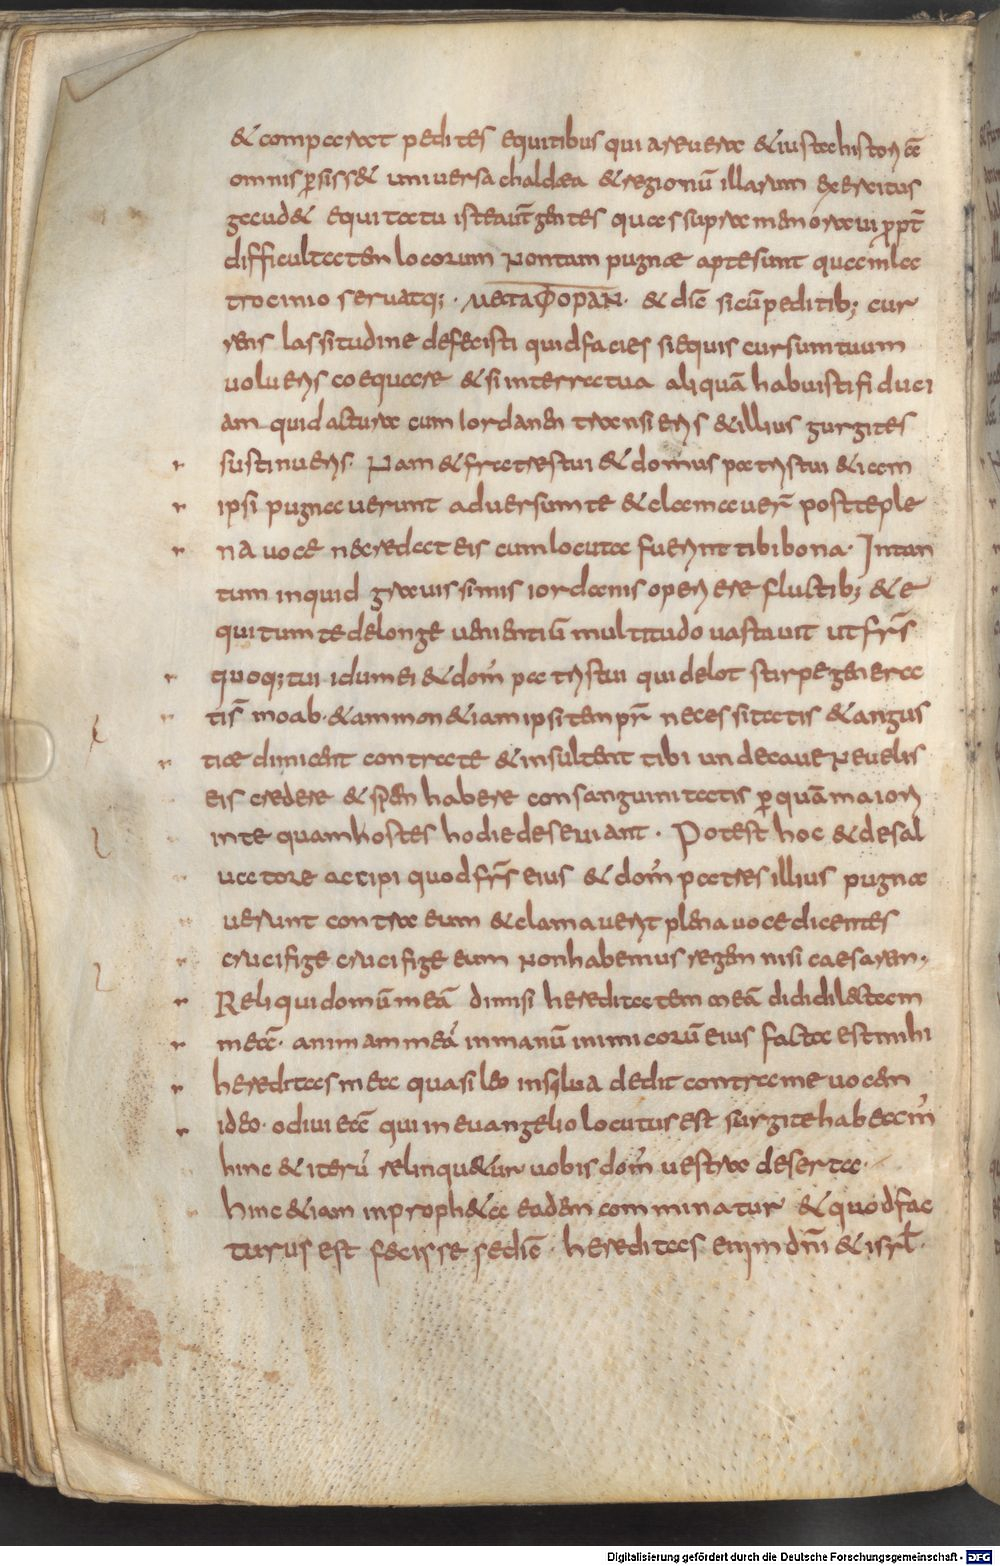 & comparat pedites equitibus qui a reuera & iuxta historiā
omnis p̄sis s& uniuersa chaldæa & regionū illarum exercitus
gaud& equitatu isteaūt gentes quas supra memorauī ꝓpt̄
difficultatem locorum non tam pugnæ aptesunt quā inla
trocinio seruatq; · ΜΕΤΑΦΟΡΑΝ · & diē sicū peditib; cur
rens lassitudine defecisti quid facies si equis cursum tuum
uolueris coequare & si in terra tua aliquā habuisti fiduci
am quid actura cum Iordanen transieris & illius gurgites
sustinueris. Nam & fratres tui & domus patris tui & iam
ipsi pugnauerunt aduersum te & clamauer̄ post te ple
na uoce ne credas eis cum locuta fuerint tibi bona · In tan
tum inquid grauissimis iordanis operiere fluctib; & e
quitum te de longe uenientiū multitudo uastauit ut fr̄s
quoq; tui idumei & dom̄ patris tui qui de lot stirpe genera
tis̄ moab · & ammon & iam ipsi tempr̄ necessitatis & angus
tiæ dimicent contra te & insultent tibi unde caue ne uelis
eis credere & spem habere consanguinitatis p̄ quā maiori
in te quam hostes hodie deseuiant · Potest hoc & de sal
uatore accipi quod fr̄s eius & dom̄ patres illius pugna
uerunt contra eum & clamauerit plena uoce dicentes
crucifige crucifige eum non habemus regem nisi caesarem ·
Reliqui domū meā dimisi hereditatem meā didi dilectam
meā · animam meā in manū inimicorū eius facta est mihi
hereditas mea quasi leo in silua dedit contra me uocem
ideo · odiui eā qui in euangelio locutus est surgite habeam̄
hinc & iterū relinqu&ur uobis dom̄ uestra deserta ·
hinc &iam in proph&a eadem comminatur & quod fac
turus est fecisse sediē · hereditas enim dn̄i & isrl̄ ·
Digitalisierung gefördert durch die Deutsche Forschungsgemeinschaft - DFG